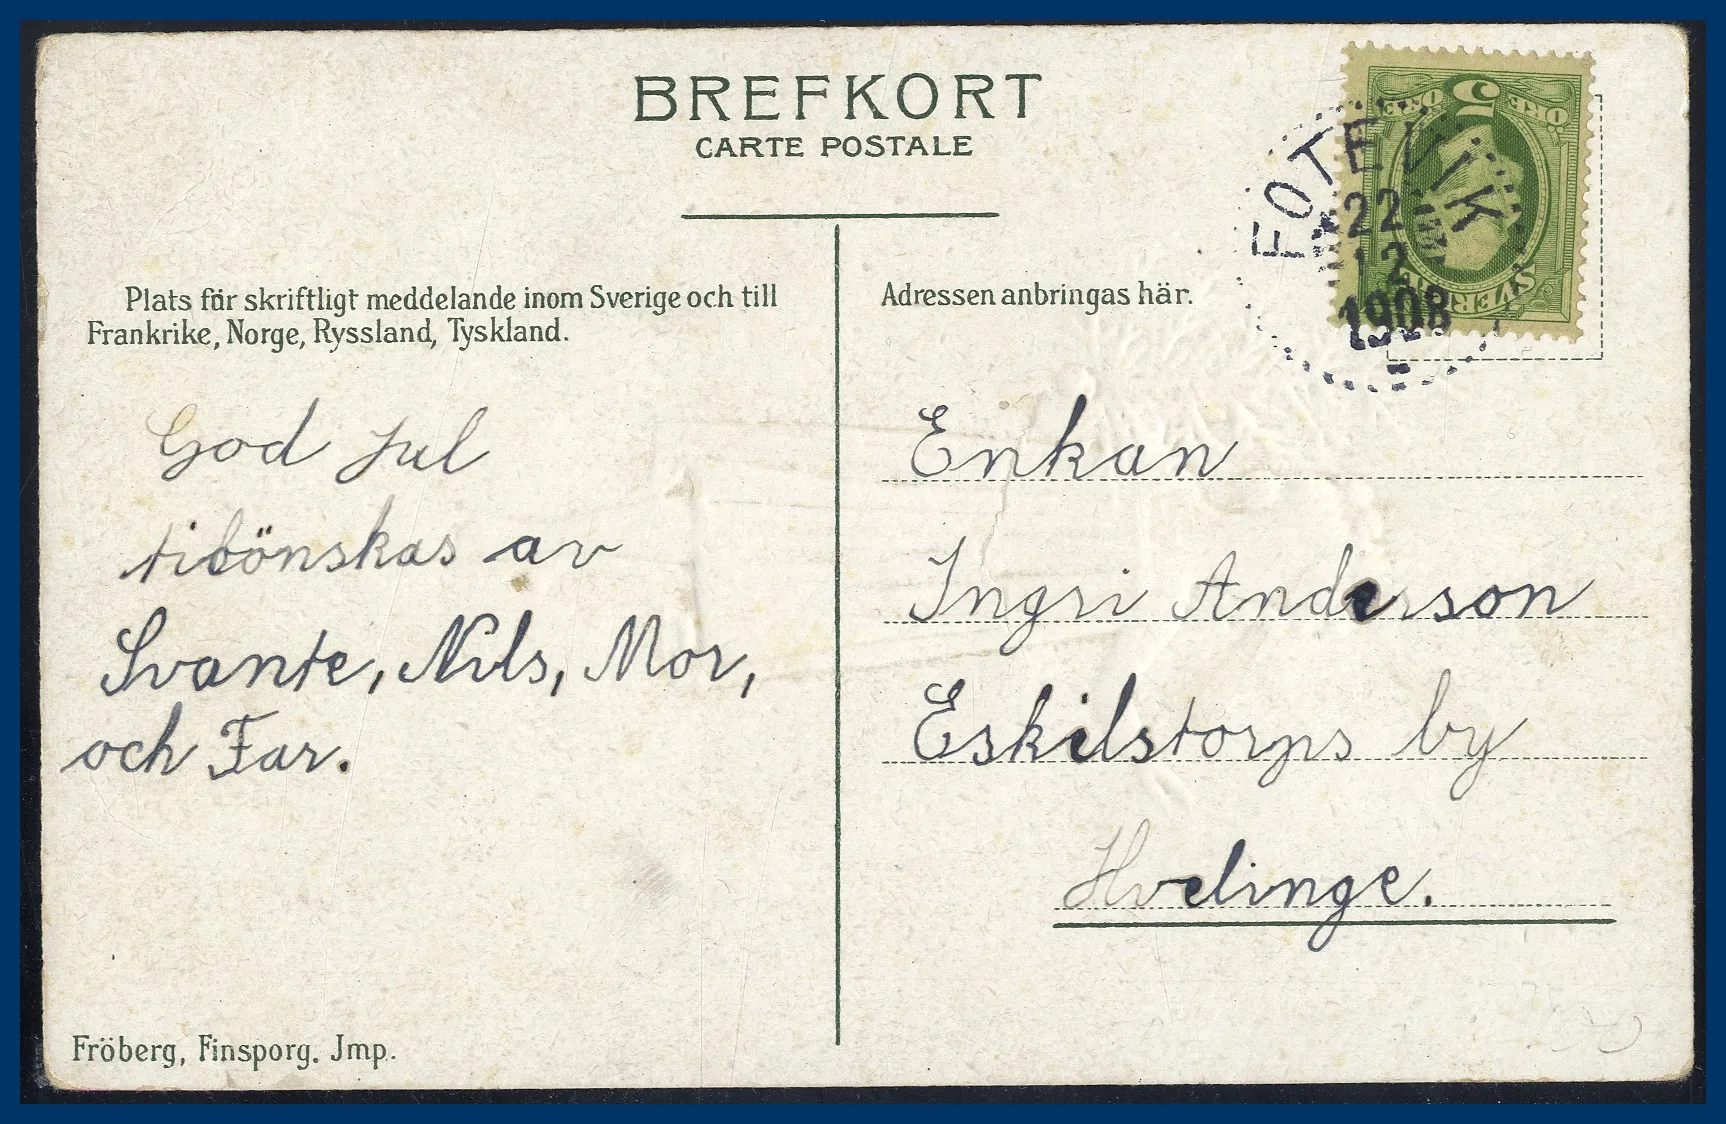 BREFKORT
CARTE POSTALE
Plats för skriftligt meddelande inom Sverige och till
Frankrike, Norge, Ryssland, Tyskland.
God Jul
tilönskas av
Svante, Nils, Mor,
och Far.
Fröberg, Finsporg. Jmp.
5
ÖRE
ÖRE
SVERIGE
FOTEVIK
22
12
1908
Adressen anbringas här.
Enkan
Ingri Anderson
Eskilstorps by
Hvelinge.